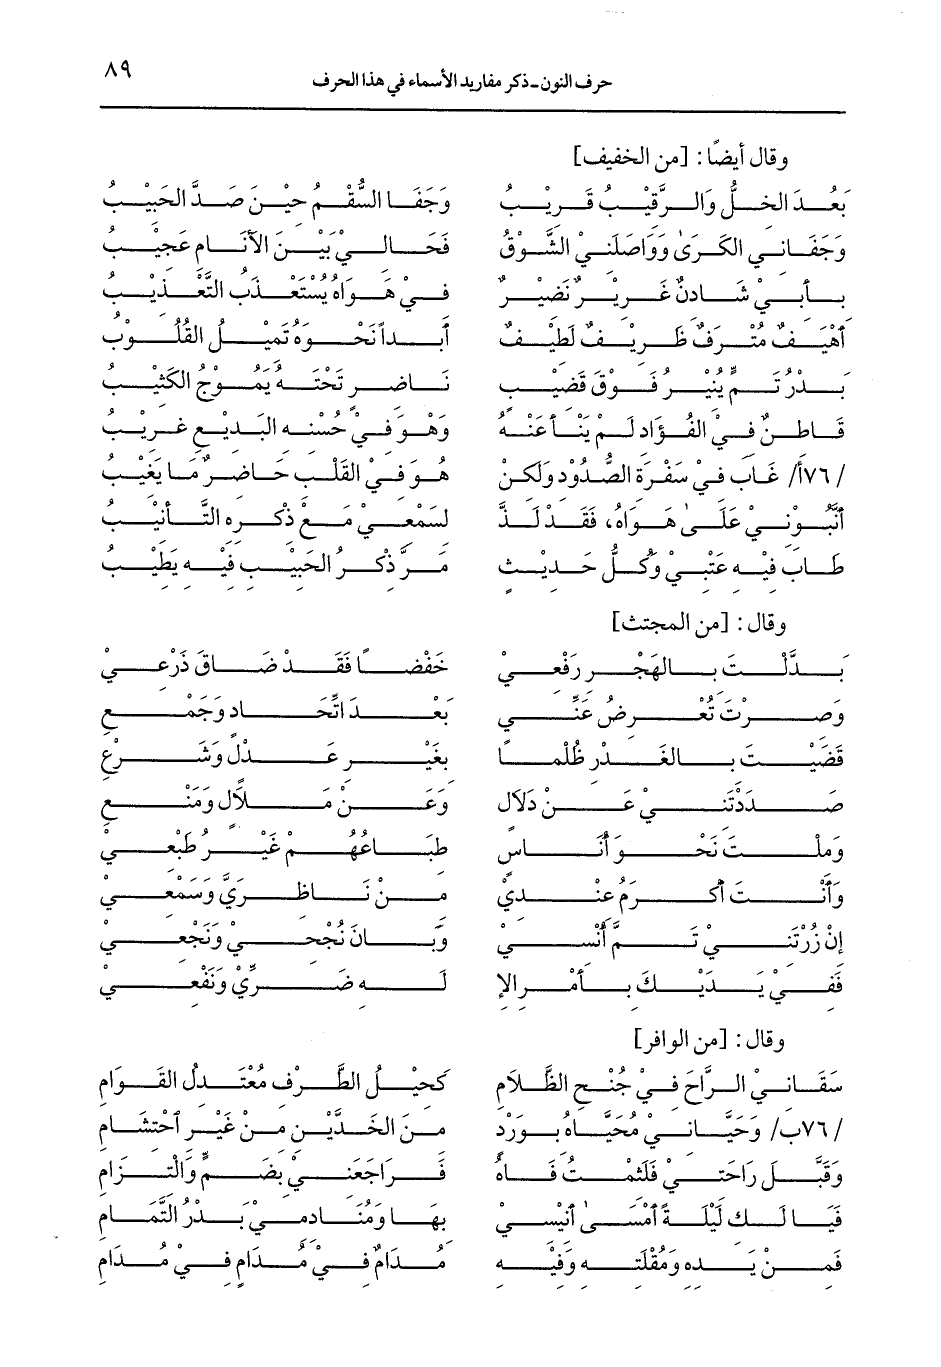 حرف النون ـ ذكر مفاريد الأسماء في هذا الحرف ٨٩
وقال أيضًا: [من الخفيف]
بَعُدَ الخلُّ وَالرَّقيْبُ قَريْبُ وَجَفَا السُّقْمُ حيْنَ صَدَّ الحَبيْبُ
وَجَفَاني الكَرَىٰ وَوَاصَلَنيْ الشَّوْقُ فَحَاليْ بَيْنَ الأَنَام عَجيْبُ
بأَبيْ شَادنٌ غَريْرٌ نَضيْرٌ فيْ هَوَاهُ يُسْتَعْذَبُ التَّعْذيْبُ
أَهْيَفٌ مُتْرَفٌ ظَريفٌ لَطيْفٌ أَبَداً نَحْوَهُ تَميْلُ القُلُوْبُ
بَدْرُ تَمٍّ يُنيْرُ فَوْقَ قَضيْبٍ نَاضرٍ تَحْتَهُ يَمُوْجُ الكَثيْبُ
قَاطنٌ في الفُؤَاد لَمْ يَنْأَ عَنْهُ وَهْوَ فيْ حُسْنه البَديْع غَريْبُ
/٧٦أ/ غَابَ فيْ سَفْرَة الصُّدُوْد وَلَكنْ هُوَ في القَلْب حَاضرٌ مَا يَغيْبُ
أَنَّبُوْنيْ عَلَىٰ هَوَاهُ، فَقَدْ لَذَّ لسَمْعيْ مَعْ ذكْره التَّأنيْبُ
طَابَ فيْه عَتْبيْ وَكُلُّ حَديْثٍ مَرَّ ذكْرُ الحَبيْب فيْه يَطيْبُ
وقال: [من المجتث]
بَدَّلْتَ بالهَجْر رَفْعيْ خَفْضاً فَقَدْ ضَاقَ ذَرْعيْ
وَصرْتَ تُعْرضُ عَنِّي بَعْدَ اتِّحَاد وَجَمْعِ
قَضَيْتَ بالغَدْر ظُلْمًا بغَيْر عَدْلٍ وَشَرْعِ
صَدَدْتَني عَنْ دَلَال وَعَنْ مَلَالٍ وَمَنْعِ
وَملْتَ نَحْوَ أُنَاسٍ طبَاعُهُمْ غَيْرُ طَبْعيْ
وَأَنْتَ أَكْرَمُ عنْديْ منْ نَاظريَّ وَسَمْعيْ
إنْ زُرْتَنيْ تَمَّ أُنْسيْ وَبَانَ نُجْحيْ وَنَجْعيْ
فَفيْ يَدَيْكَ بأَمْر الإ لَه ضَرِّيْ وَنَفْعيْ
وقال: [من الوافر]
سَقَانيْ الرَّاحَ فيْ جُنْح الظَّلَامِ كَحيْلُ الطَّرْف مُعْتَدلُ القَوَامِ
/٧٦ب/ وَحَيَّانيْ مُحَيَّاهُ بوَرْدٍ منَ الخَدَّيْن منْ غَيْر احْتشَامِ
وَقَبَّلَ رَاحَتيْ فَلَثمْتُ فَاهُ فَرَاجَعَنيْ بضَمٍّ وَالْتزَامِ
فَيَا لَك لَيْلَةً أَمْسَىٰ أَنيْسيْ بهَا وَمُنَادميْ بَدْرُ التَّمَامِ
فَمنْ يَده وَمُقْلَته وَفيْه مُدَامٌ فيْ مُدَامٍ فيْ مُدَامِ